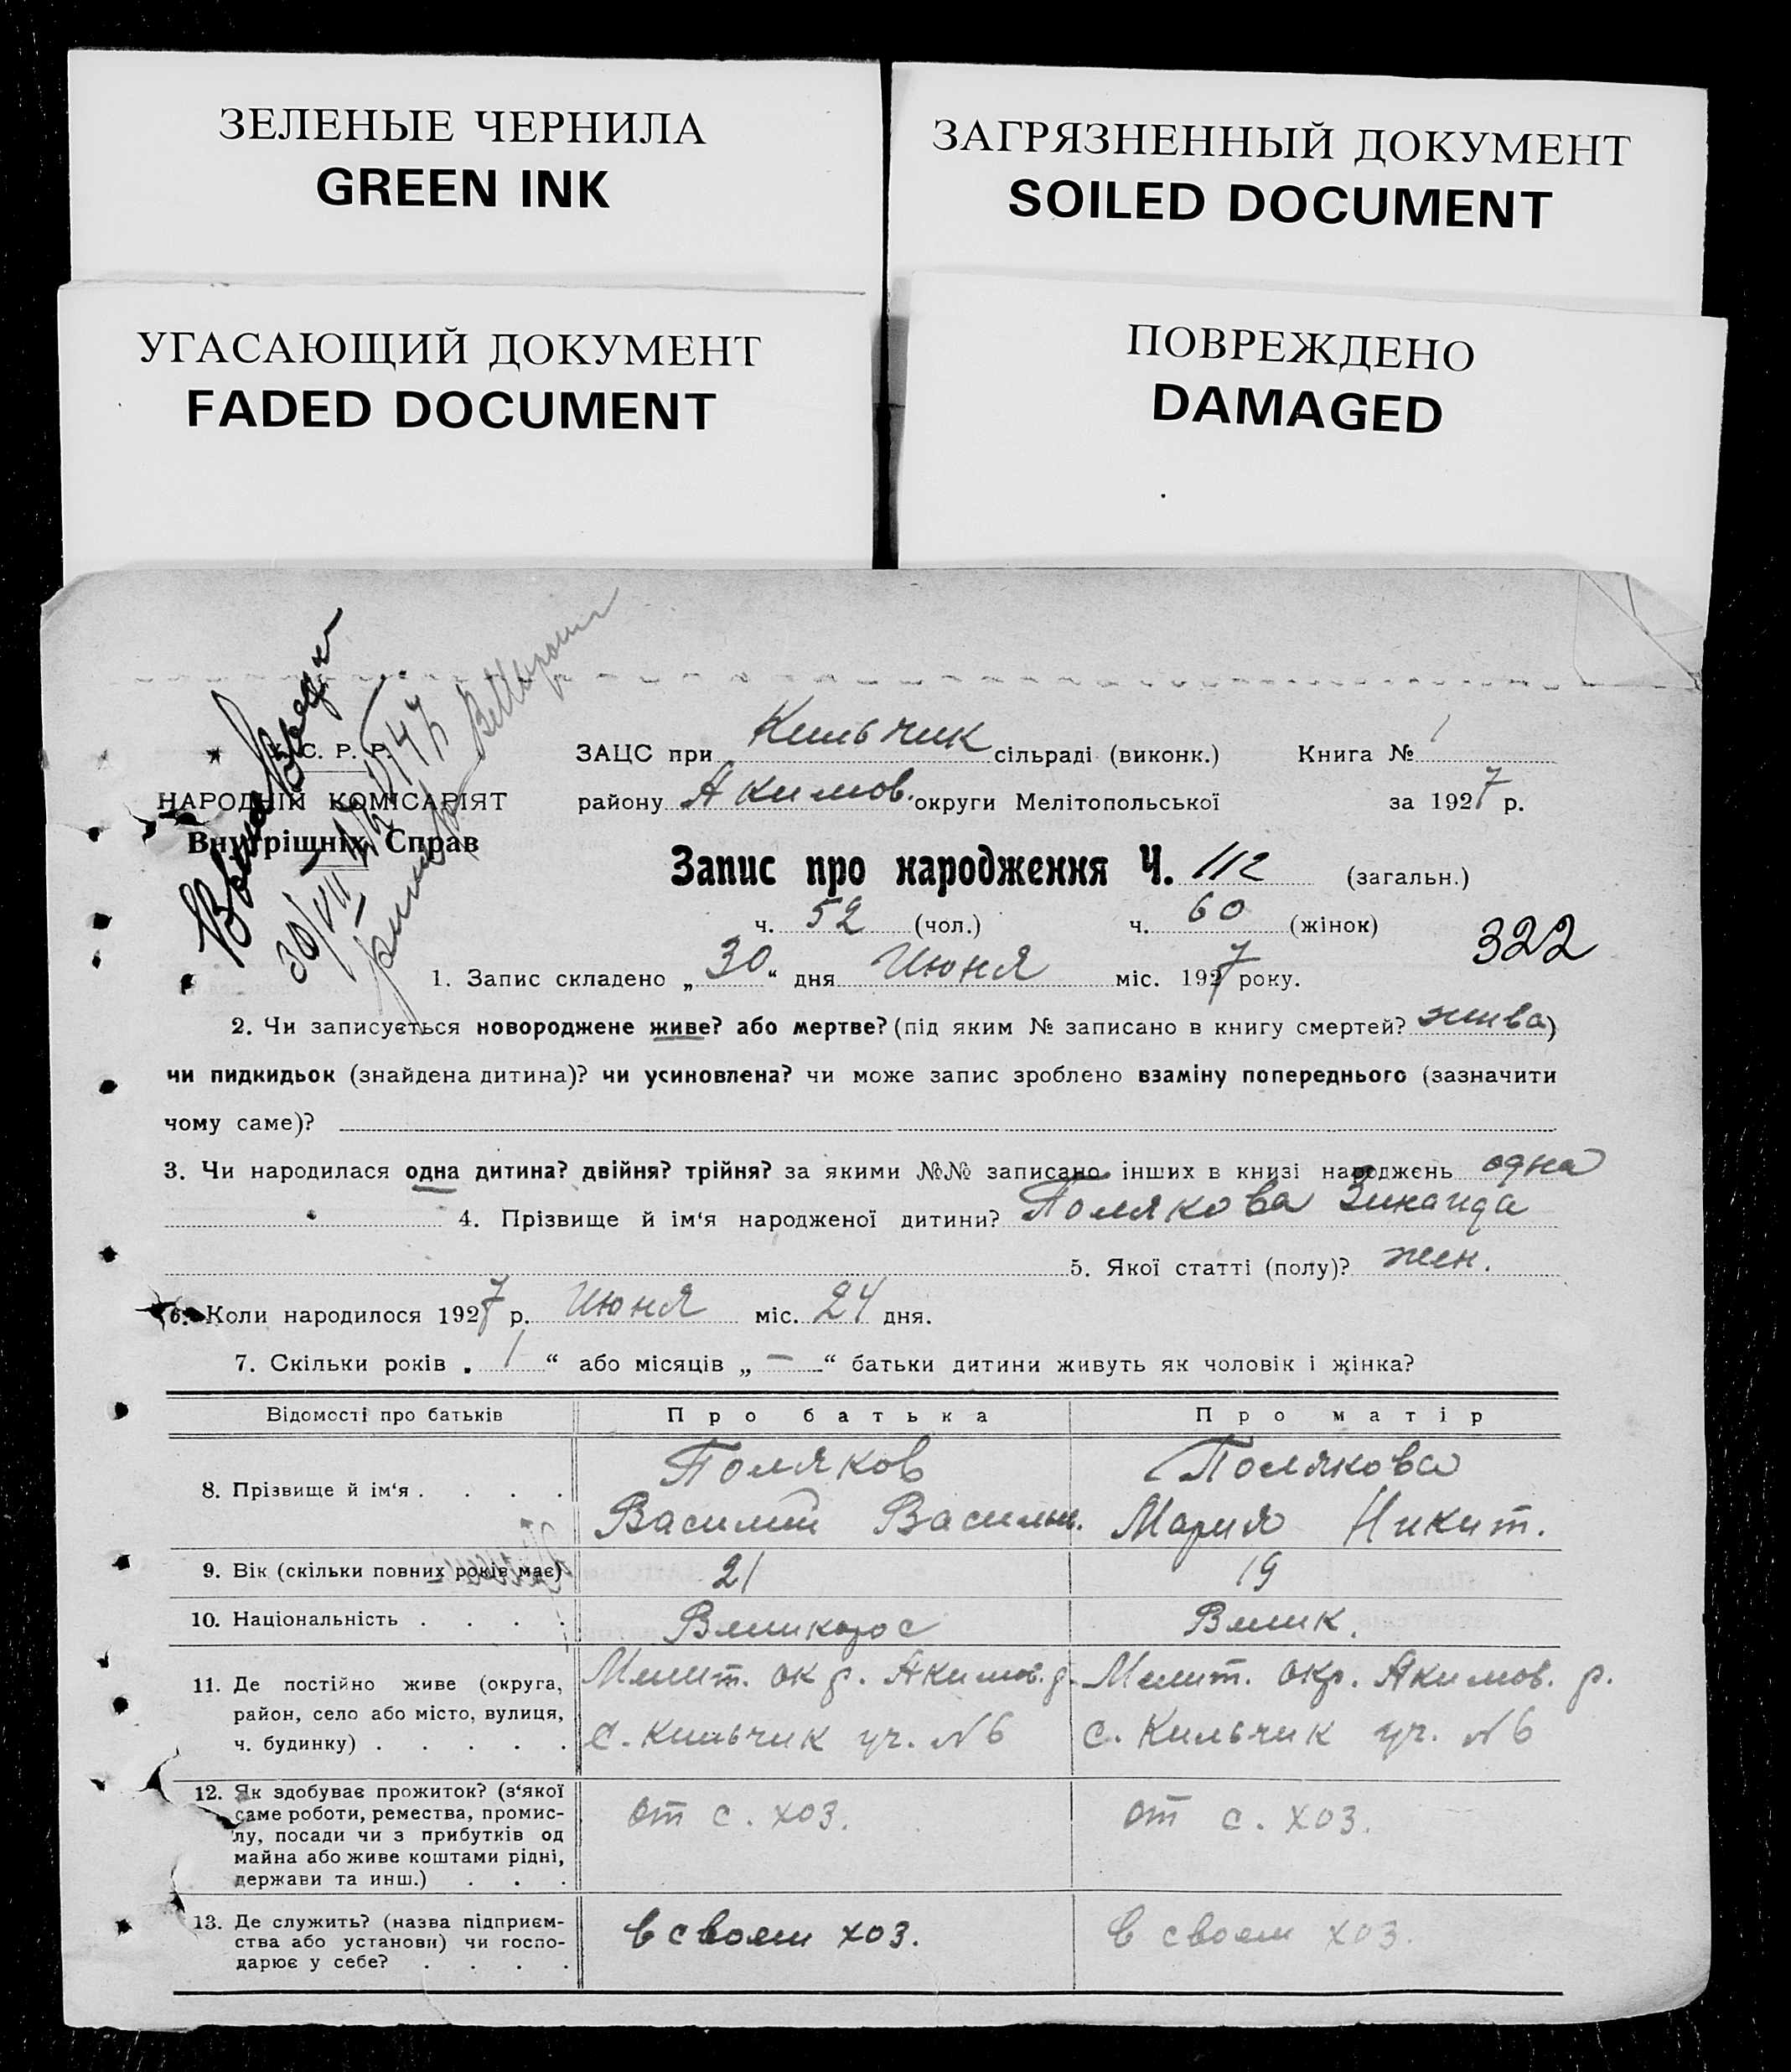 ЗЕЛЕНЫЕ ЧЕРНИЛА
GREEN INK
ЗАГРЯЗНЕННЫЙ ДОКУМЕНТ
SOILED DOCUMENT
УГАСАЮЩИЙ ДОКУМЕНТ
FADED DOCUMENT
ПОВРЕЖДЕНО
DAMAGED
У. С. Р. Р.
НАРОДНІЙ КОМІСАРІЯТ
Внутрішніх Справ
ЗАЦС при Кильчик сільраді (виконк.) Книга № 1
району Акимов. округи Мелітопольської за 1927 р.
Запис про народження Ч. 112 (загальн.)
ч. 52 (чол.) ч. 60 (жінок)
322
1. Запис складено „30“ дня Июня міс. 1927 року.
2. Чи записується новороджене живе? або мертве? (під яким № записано в книгу смертей? жива)
чи пидкидьок (знайдена дитина)? чи усиновлена? чи може запис зроблено взаміну попереднього (зазначити
чому саме)?
3. Чи народилася одна дитина? двійня? трійня? за якими №№ записано інших в книзі народжень одна
4. Прізвище й ім‘я народженої дитини? Полякова Зинаида
5. Якої статті (полу)? жен.
6. Коли народилося 1927 р. Июня міс. 24 дня.
7. Скільки років „1“ або місяців „—“ батьки дитини живуть як чоловік і жінка?
Відомості про батьків Про батька Про матір
8. Прізвище й ім‘я . . . . Поляков Василий Васильи. Полякова Мария Никит.
9. Вік (скільки повних років має) 21 19
10. Національність . . . . Великорос Велик.
11. Де постійно живе (округа,
район, село або місто, вулиця,
ч. будинку) . . . . .
Мелит. окр. Акимов. р. Мелит. окр. Акимов. р.
с. Кильчик уч. №6 с. Кильчик уч. №6
12. Як здобуває прожиток? (з‘якої
саме роботи, ремества, промис-
лу, посади чи з прибутків од
майна або живе коштами рідні,
держави та инш.) . . .
от с. хоз. от с. хоз.
13. Де служить? (назва підприєм-
ства або установи) чи госпо-
дарює у себе? . . . .
в своем хоз. в своем хоз.